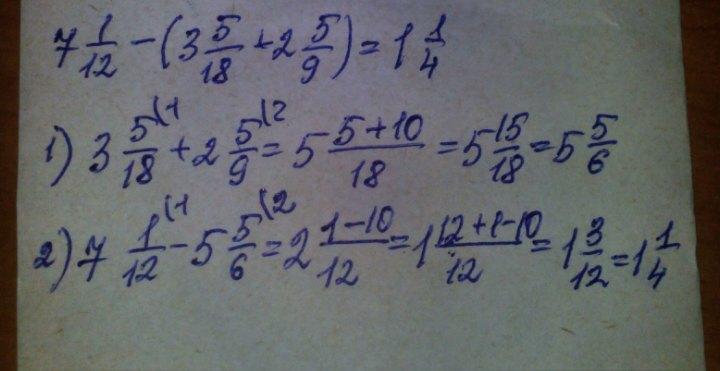 7 1/12 - (3 5/18 + 2 5/9) = 1 1/4
1) 3 5/18 (1 + 2 5/9 (2 = 5 5+10/18 = 5 15/18 = 5 5/6
2) 7 1/12 (1 - 5 5/6 (2 = 2 1-10/12 = 1 12+1-10/12 = 1 3/12 = 1 1/4